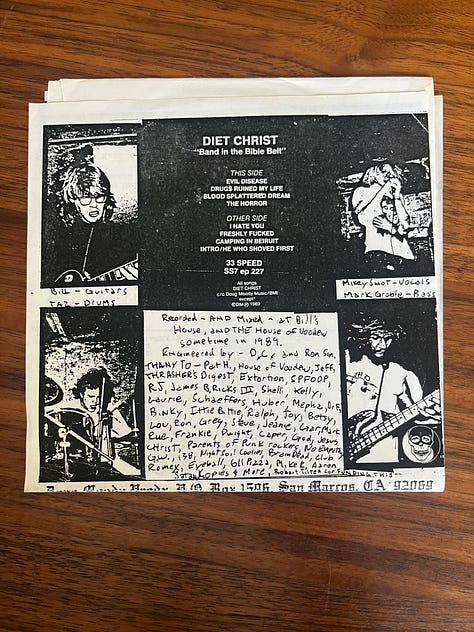 DIET CHRIST
"Band in the Bible Belt"
THIS SIDE
EVIL DISEASE
DRUGS RUINED MY LIFE
BLOOD SPLATTERED DREAM
THE HORROR
OTHER SIDE
I HATE YOU
FRESHLY FUCKED
CAMPING IN BEIRUT
INTRO/HE WHO SHOVED FIRST
33 SPEED
SS7 ep 227
All songs
DIET CHRIST
c/o Doug Moody Music/BMI
except*
©DM℗1989
BILL - Guitars
TAZ - DRUMS
Mikey Snot - Vocals
Mark Groble - Bass
Recorded - AND Mixed - at Bill's
House, and THE House of Voodoo
sometime in 1989.
Engineered by - D.C. and Ron Son,
THANX TO - Pat H., House of Voodoo, Jeff,
THRASHER'S Digest, Extortion, SPFOOP,
RJ, James B, Ricks III, Sheli, Kelly,
Laurie, Schaeffers, Huber, Mephz,
Binky, Ittie Bittie, Ralph, Joy, Betty
Lou, Ron, Greg, Steve, Jeanie, Czar, Mark
Rue, Frankie, Dwight, Caper, God, Jesus,
Christ, Parents of Punk rockers, No Empathy,
GW, 138, Nightsoil Coolies, Brain Dead, Club
Romex, Eyeball, Gil Pizza, Mike B, Aaron
Satan, Copies & More, for FUNDING THIS -
P.O. Box 1596, San Marcos, CA 92069